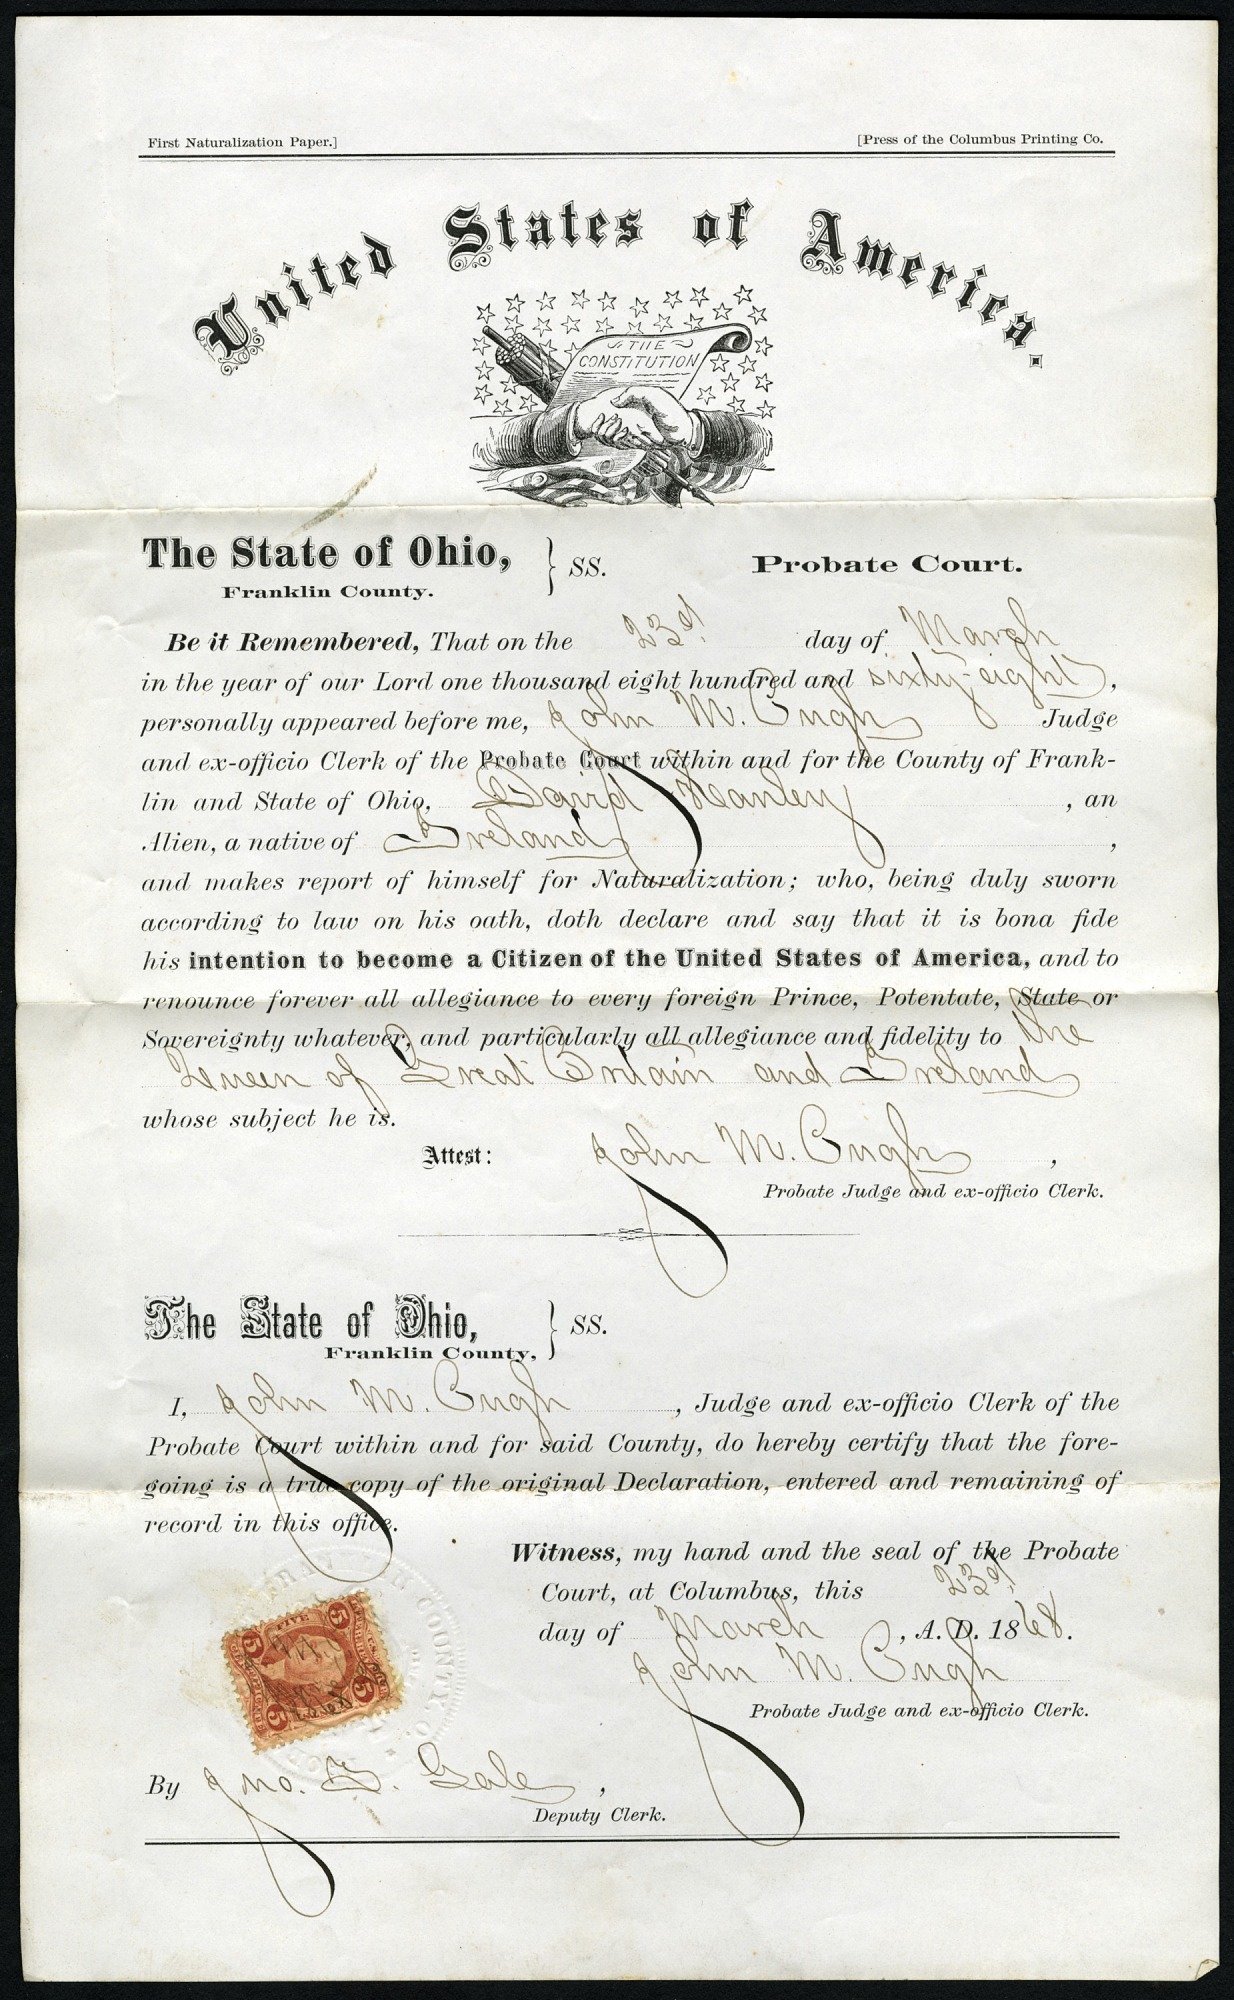 First Naturalization Paper.]
[Press of the Columbus Printing Co.
United States of America.
THE
CONSTITUTION
The State of Ohio, } SS. Probate Court.
Franklin County.
Be it Remembered, That on the 23d day of March
in the year of our Lord one thousand eight hundred and sixty-eight,
personally appeared before me, John M. Pugh Judge
and ex-officio Clerk of the Probate Court within and for the County of Frank-
lin and State of Ohio, David Hanley, an
Alien, a native of Ireland,
and makes report of himself for Naturalization; who, being duly sworn
according to law on his oath, doth declare and say that it is bona fide
his intention to become a Citizen of the United States of America, and to
renounce forever all allegiance to every foreign Prince, Potentate, State or
Sovereignty whatever, and particularly all allegiance and fidelity to the
Queen of Great Britain and Ireland
whose subject he is.
Attest: John M. Pugh,
Probate Judge and ex-officio Clerk.
The State of Ohio, } SS.
Franklin County,
I, John M. Pugh, Judge and ex-officio Clerk of the
Probate Court within and for said County, do hereby certify that the fore-
going is a true copy of the original Declaration, entered and remaining of
record in this office.
Witness, my hand and the seal of the Probate
Court, at Columbus, this 23d
day of March, A. D. 1868.
John M. Pugh
Probate Judge and ex-officio Clerk.
5 FIVE 5
5 5
By Jno. T. Gale,
Deputy Clerk.